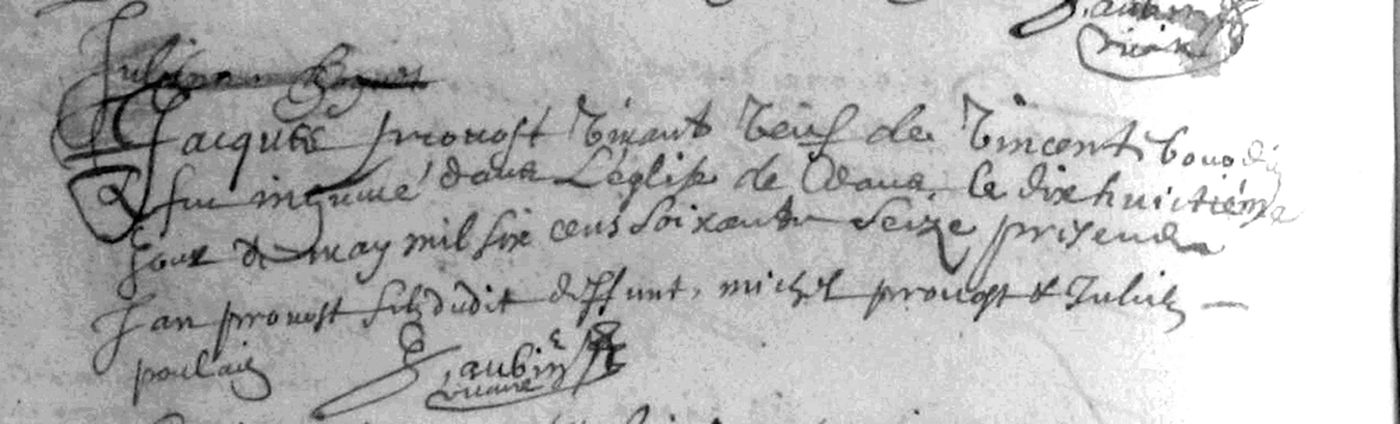 J. aubin
vicaire
Jacques provost vivant veuf de Vincent
fut inhumé dans L'églisse de Ceans le dixhuictieme
Jour de may mil six cens soixante seize presens
Jan provost filz dudit deffunt, michel provost & Julien
poulain J. aubin
vicaire